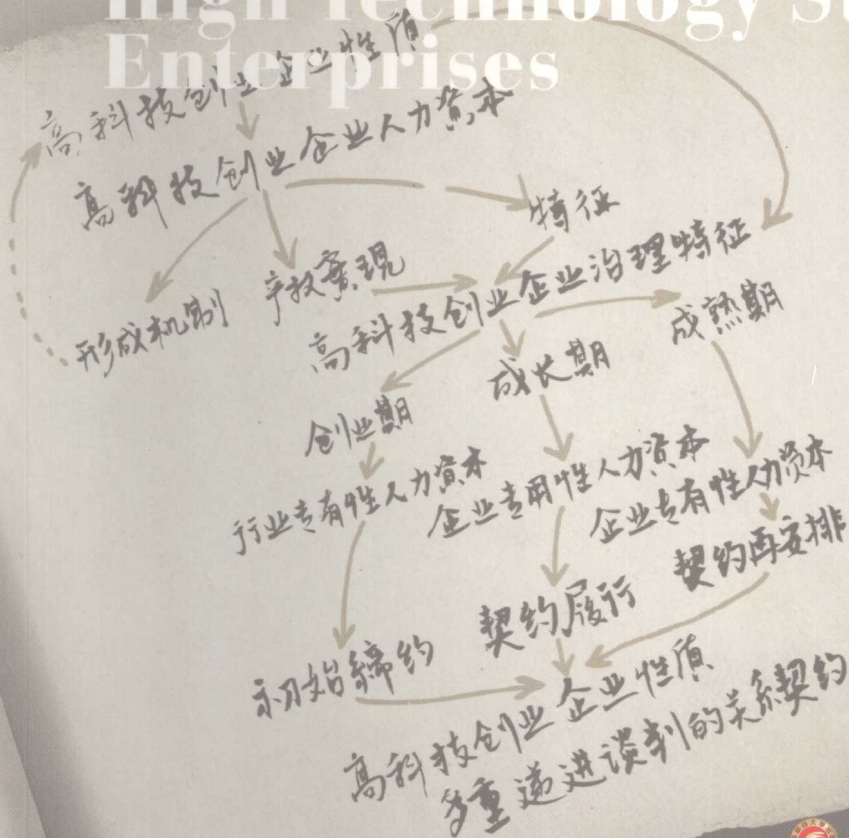 High Technology St
Enterprises
高科技创业企业性质
高科技创业企业人力资本
特征
形成机制
产权实现
高科技创业企业治理特征
创业期
成长期
成熟期
行业专有性人力资本
企业专用性人力资本
企业专有性人力资本
初始缔约
契约履行
契约再安排
高科技创业企业性质
多重递进谈判的关系契约